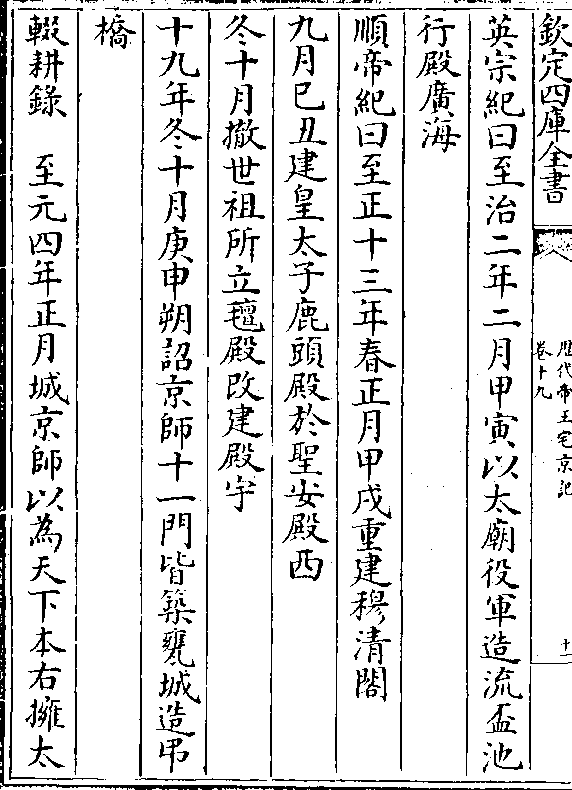 欽定四庫全書
歷代帝王宅京記
卷十九
十一
英宗紀曰至治二年二月甲寅以太廟役軍造流盃池
行殿廣海
順帝紀曰至正十三年春正月甲戌重建穆清閣
九月己丑建皇太子鹿頭殿於聖安殿西
冬十月撤世祖所立氊殿改建殿宇
十九年冬十月庚申朔詔京師十一門皆築甕城造弔
橋
輟耕錄　至元四年正月城京師以為天下本右擁太